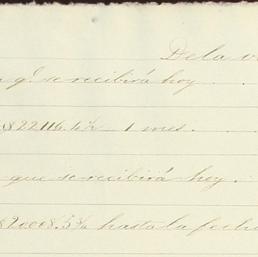 De la v
q.e se recibirá hoy
$22116.4½ - 1 mes.
que se recibirá hoy.
$20008.5¾ hasta la fecha